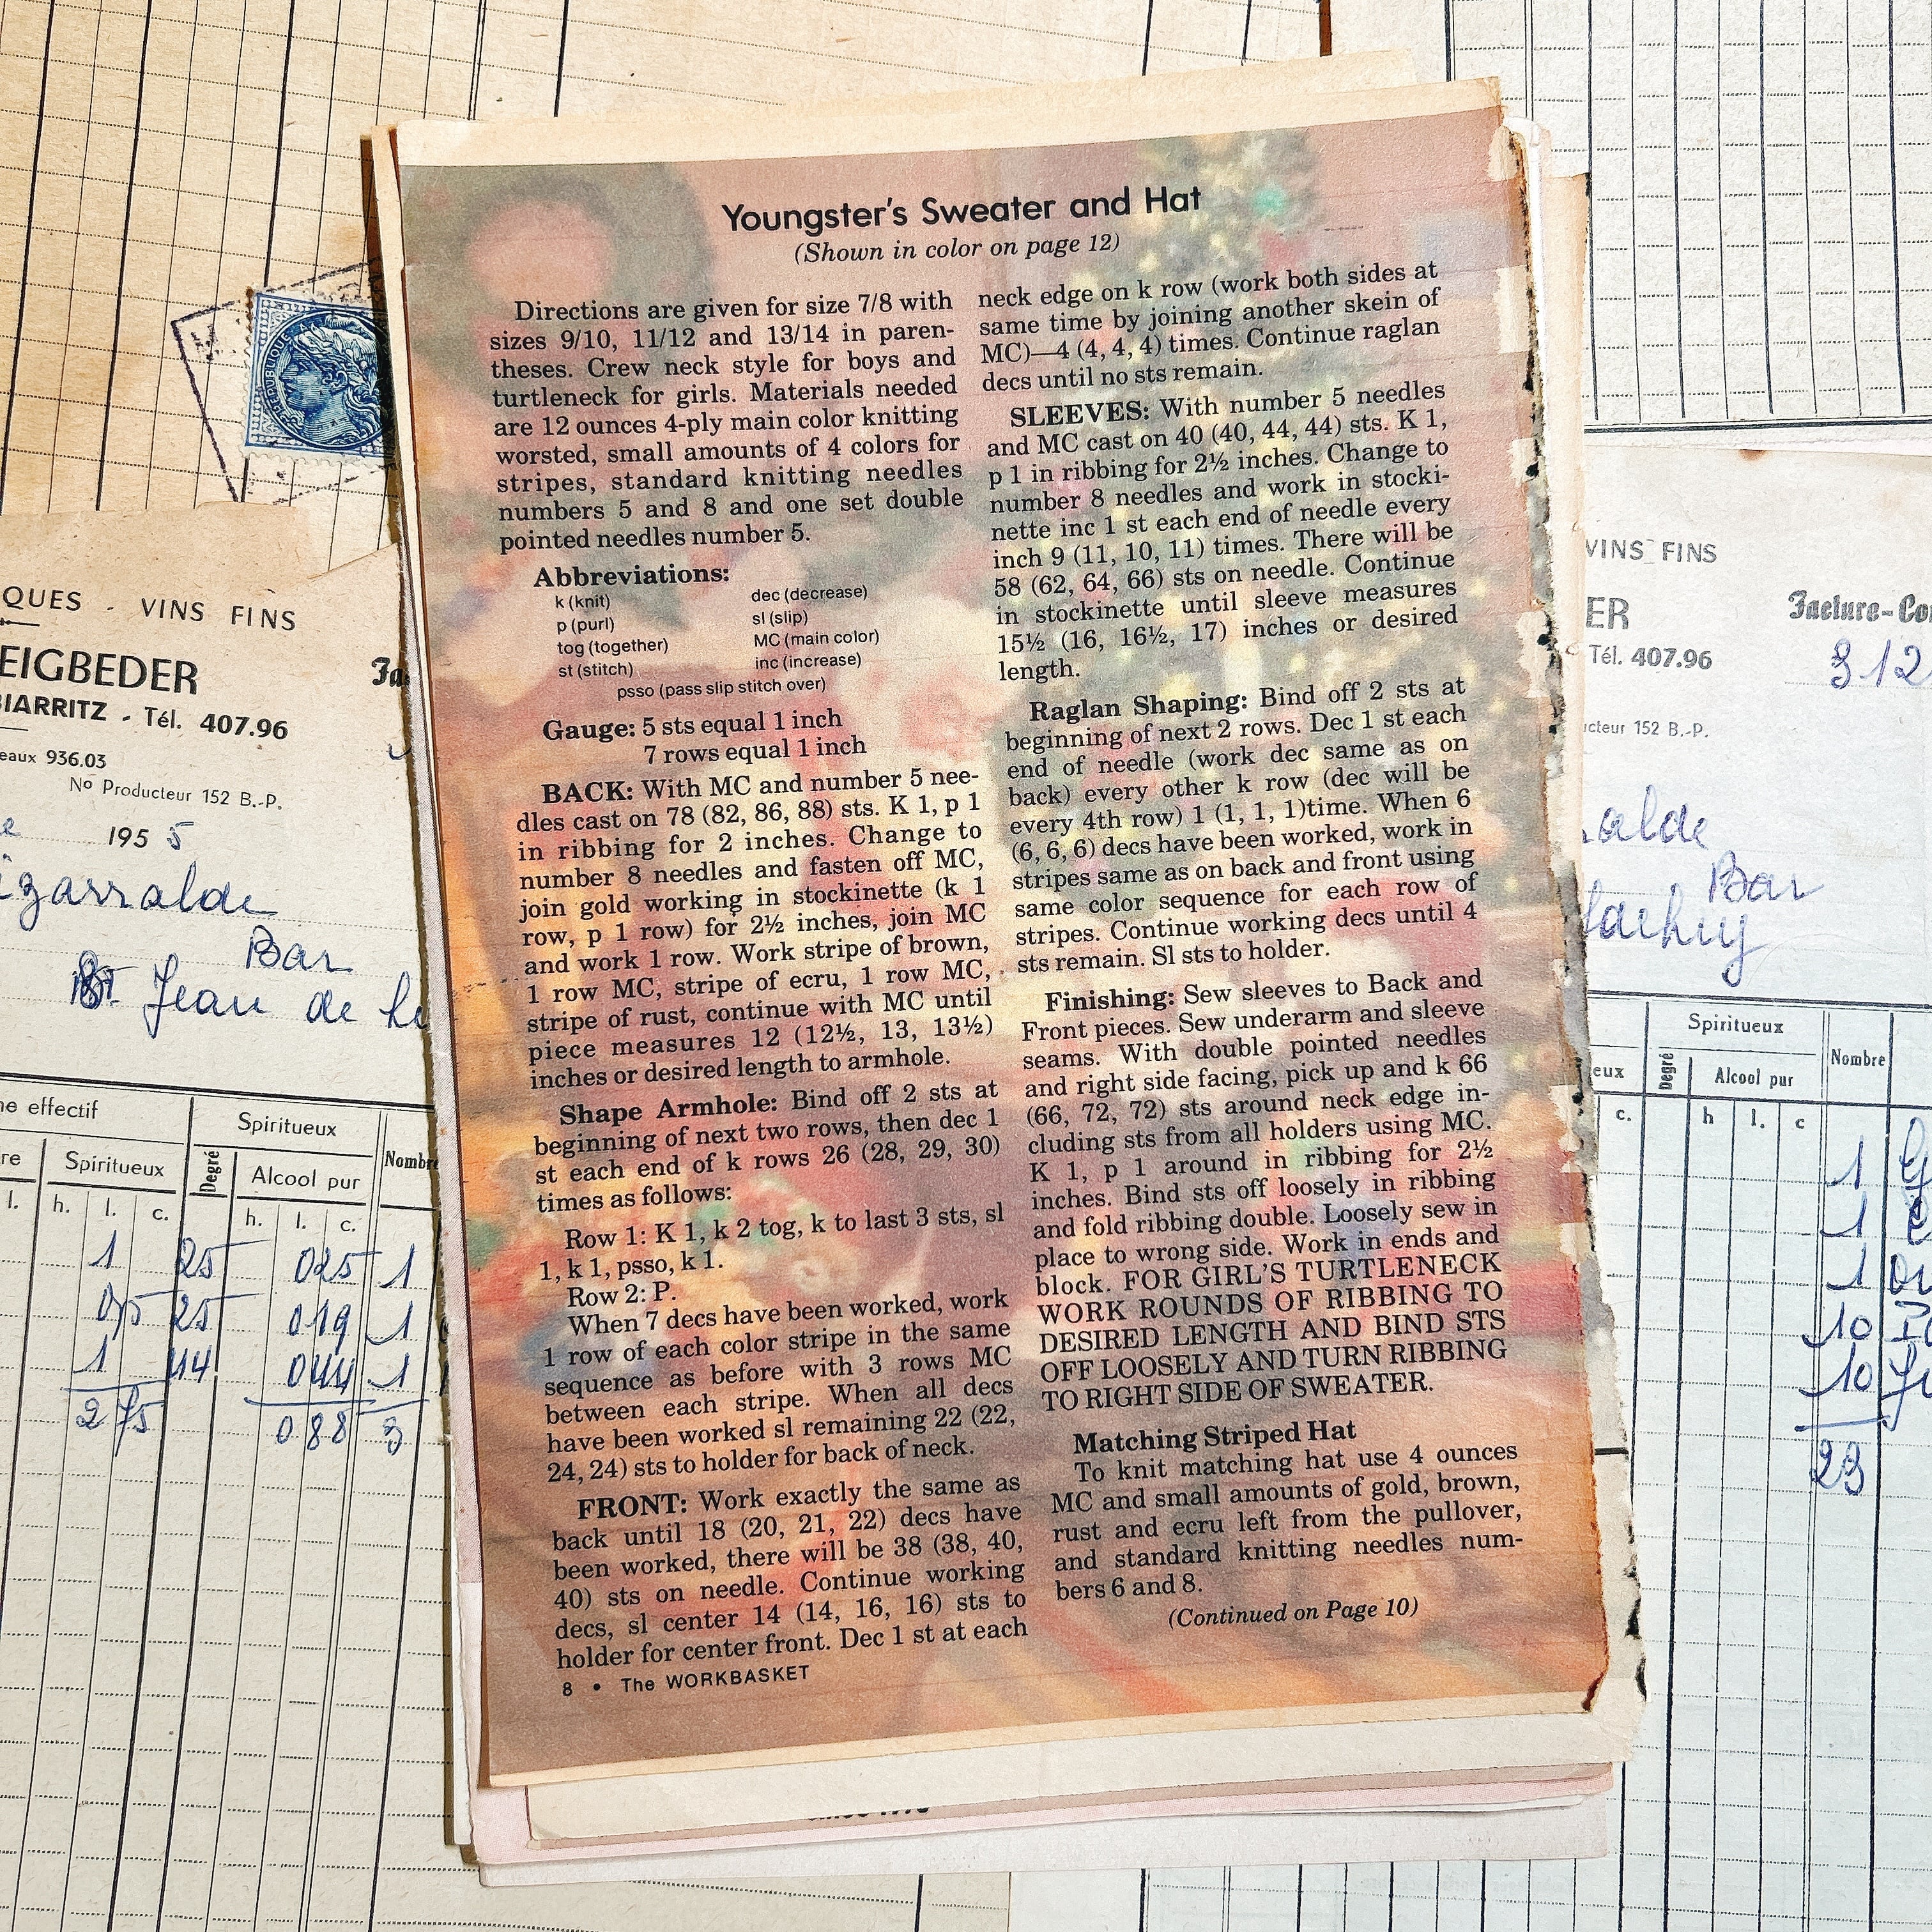 Youngster's Sweater and Hat
(Shown in color on page 12)
Directions are given for size 7/8 with
sizes 9/10, 11/12 and 13/14 in paren-
theses. Crew neck style for boys and
turtleneck for girls. Materials needed
are 12 ounces 4-ply main color knitting
worsted, small amounts of 4 colors for
stripes, standard knitting needles
numbers 5 and 8 and one set double
pointed needles number 5.
Abbreviations:
k (knit)
p (purl)
tog (together)
st (stitch)
dec (decrease)
sl (slip)
MC (main color)
inc (increase)
psso (pass slip stitch over)
Gauge: 5 sts equal 1 inch
7 rows equal 1 inch
BACK: With MC and number 5 nee-
dles cast on 78 (82, 86, 88) sts. K 1, p 1
in ribbing for 2 inches. Change to
number 8 needles and fasten off MC,
join gold working in stockinette (k 1
row, p 1 row) for 2½ inches, join MC
and work 1 row. Work stripe of brown,
1 row MC, stripe of ecru, 1 row MC,
stripe of rust, continue with MC until
piece measures 12 (12½, 13, 13½)
inches or desired length to armhole.
Shape Armhole: Bind off 2 sts at
beginning of next two rows, then dec 1
st each end of k rows 26 (28, 29, 30)
times as follows:
Row 1: K 1, k 2 tog, k to last 3 sts, sl
1, k 1, psso, k 1.
Row 2: P.
When 7 decs have been worked, work
1 row of each color stripe in the same
sequence as before with 3 rows MC
between each stripe. When all decs
have been worked sl remaining 22 (22,
24, 24) sts to holder for back of neck.
FRONT: Work exactly the same as
back until 18 (20, 21, 22) decs have
been worked, there will be 38 (38, 40,
40) sts on needle. Continue working
decs, sl center 14 (14, 16, 16) sts to
holder for center front. Dec 1 st at each
8 • The WORKBASKET
neck edge on k row (work both sides at
same time by joining another skein of
MC)—4 (4, 4, 4) times. Continue raglan
decs until no sts remain.
SLEEVES: With number 5 needles
and MC cast on 40 (40, 44, 44) sts. K 1,
p 1 in ribbing for 2½ inches. Change to
number 8 needles and work in stocki-
nette inc 1 st each end of needle every
inch 9 (11, 10, 11) times. There will be
58 (62, 64, 66) sts on needle. Continue
in stockinette until sleeve measures
15½ (16, 16½, 17) inches or desired
length.
Raglan Shaping: Bind off 2 sts at
beginning of next 2 rows. Dec 1 st each
end of needle (work dec same as on
back) every other k row (dec will be
every 4th row) 1 (1, 1, 1)time. When 6
(6, 6, 6) decs have been worked, work in
stripes same as on back and front using
same color sequence for each row of
stripes. Continue working decs until 4
sts remain. Sl sts to holder.
Finishing: Sew sleeves to Back and
Front pieces. Sew underarm and sleeve
seams. With double pointed needles
and right side facing, pick up and k 66
(66, 72, 72) sts around neck edge in-
cluding sts from all holders using MC.
K 1, p 1 around in ribbing for 2½
inches. Bind sts off loosely in ribbing
and fold ribbing double. Loosely sew in
place to wrong side. Work in ends and
block. FOR GIRL'S TURTLENECK
WORK ROUNDS OF RIBBING TO
DESIRED LENGTH AND BIND STS
OFF LOOSELY AND TURN RIBBING
TO RIGHT SIDE OF SWEATER.
Matching Striped Hat
To knit matching hat use 4 ounces
MC and small amounts of gold, brown,
rust and ecru left from the pullover,
and standard knitting needles num-
bers 6 and 8.
(Continued on Page 10)
QUES - VINS FINS
EIGBEDER
BIARRITZ - Tél. 407.96
eaux 936.03
No Producteur 152 B.-P.
195 5
Bar
St Jean de
effectif
Spiritueux
Spiritueux
Degré
Alcool pur
Nombre
l. h. l. c. h. l. c.
1 25 025 1
075 25 019 1
1 44 044 1
275 088 3
VINS FINS
ER
Tél. 407.96
Facture-Co
312
ucteur 152 B.-P.
alde
Bar
Spiritueux
eux
Degré
Alcool pur
Nombre
c. h l. c
1
1
1
10
10
23
REPUBLIQUE